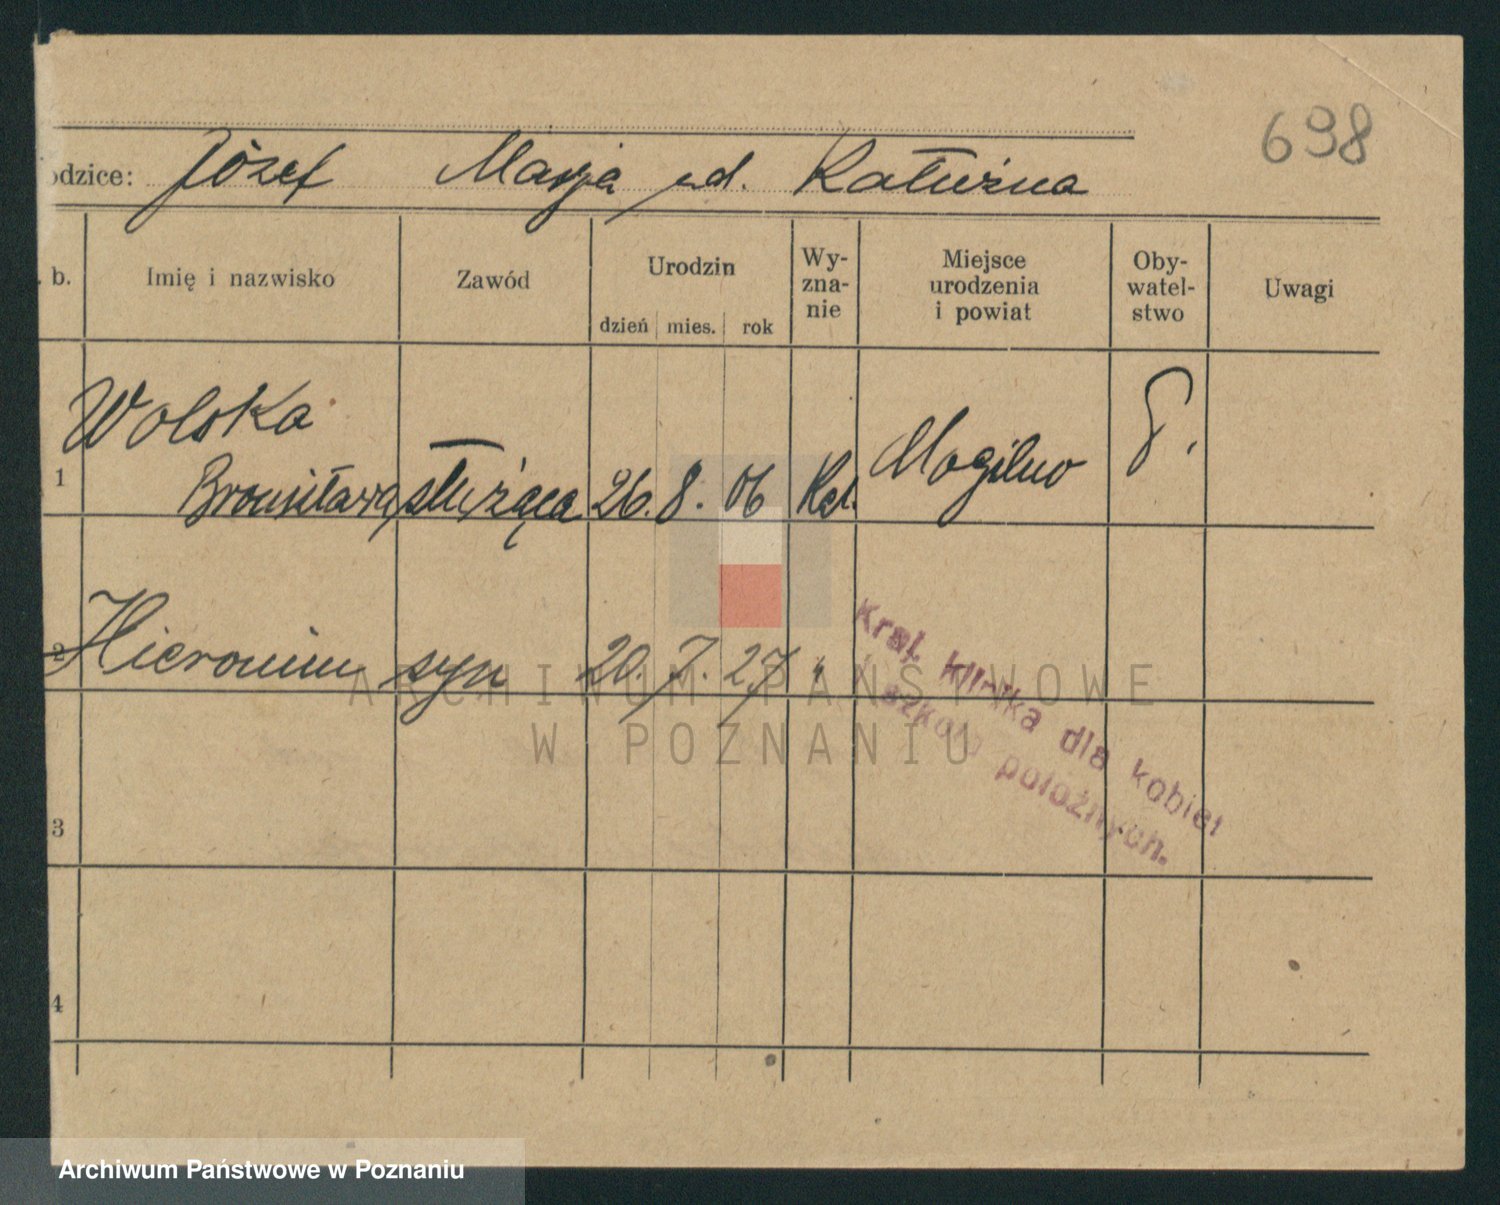 698
odzice: Józef Marja z d. Kałużna
. b. Imię i nazwisko Zawód Urodzin dzień mies. rok Wy- zna- nie Miejsce urodzenia i powiat Oby- watel- stwo Uwagi
Wolska
1 Bronisława służąca 26. 8. 06 Kat. Mogilno P.
2 Hieronim syn 20. 7. 27 "
Kraj. klinika dla kobiet
i szkoła położnych.
3
4
ARCHIWUM PAŃSTWOWE
W POZNANIU
Archiwum Państwowe w Poznaniu